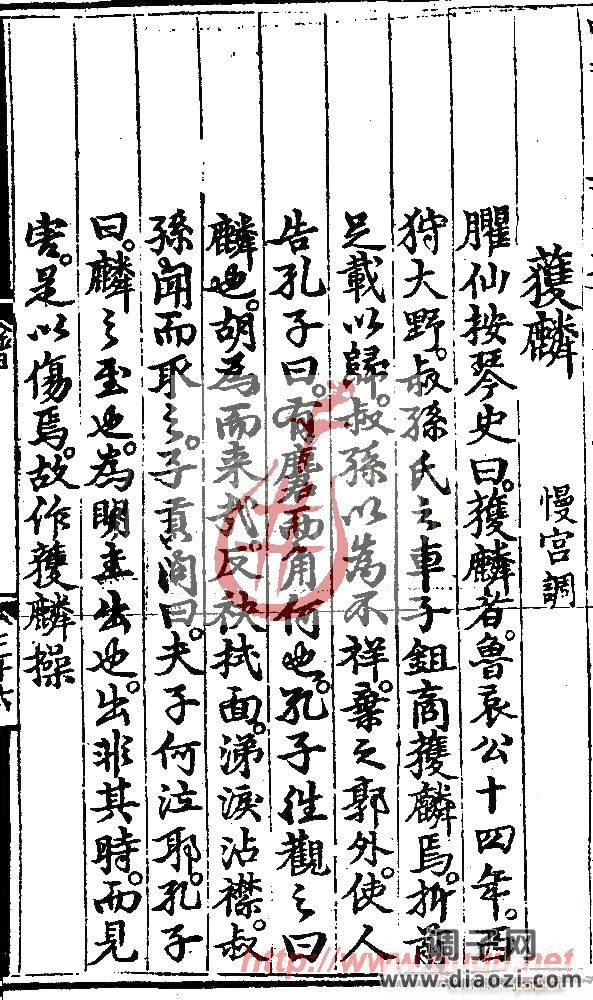 獲麟 慢宮調
臞仙按琴史曰。獲麟者。魯哀公十四年。西
狩大野。叔孫氏之車子鉏商獲麟焉。折前
足載以歸。叔孫以為不祥。棄之郭外。使人
告孔子曰。有麕而角何也。孔子往觀之曰
麟也。胡為而来哉。反袂拭面。涕淚沾襟。叔
孫聞而取之。子貢問曰。夫子何泣耶。孔子
曰。麟之至也。為明主出也。出非其時。而見
害。是以傷焉。故作獲麟操
调子网
www.diaozi.com